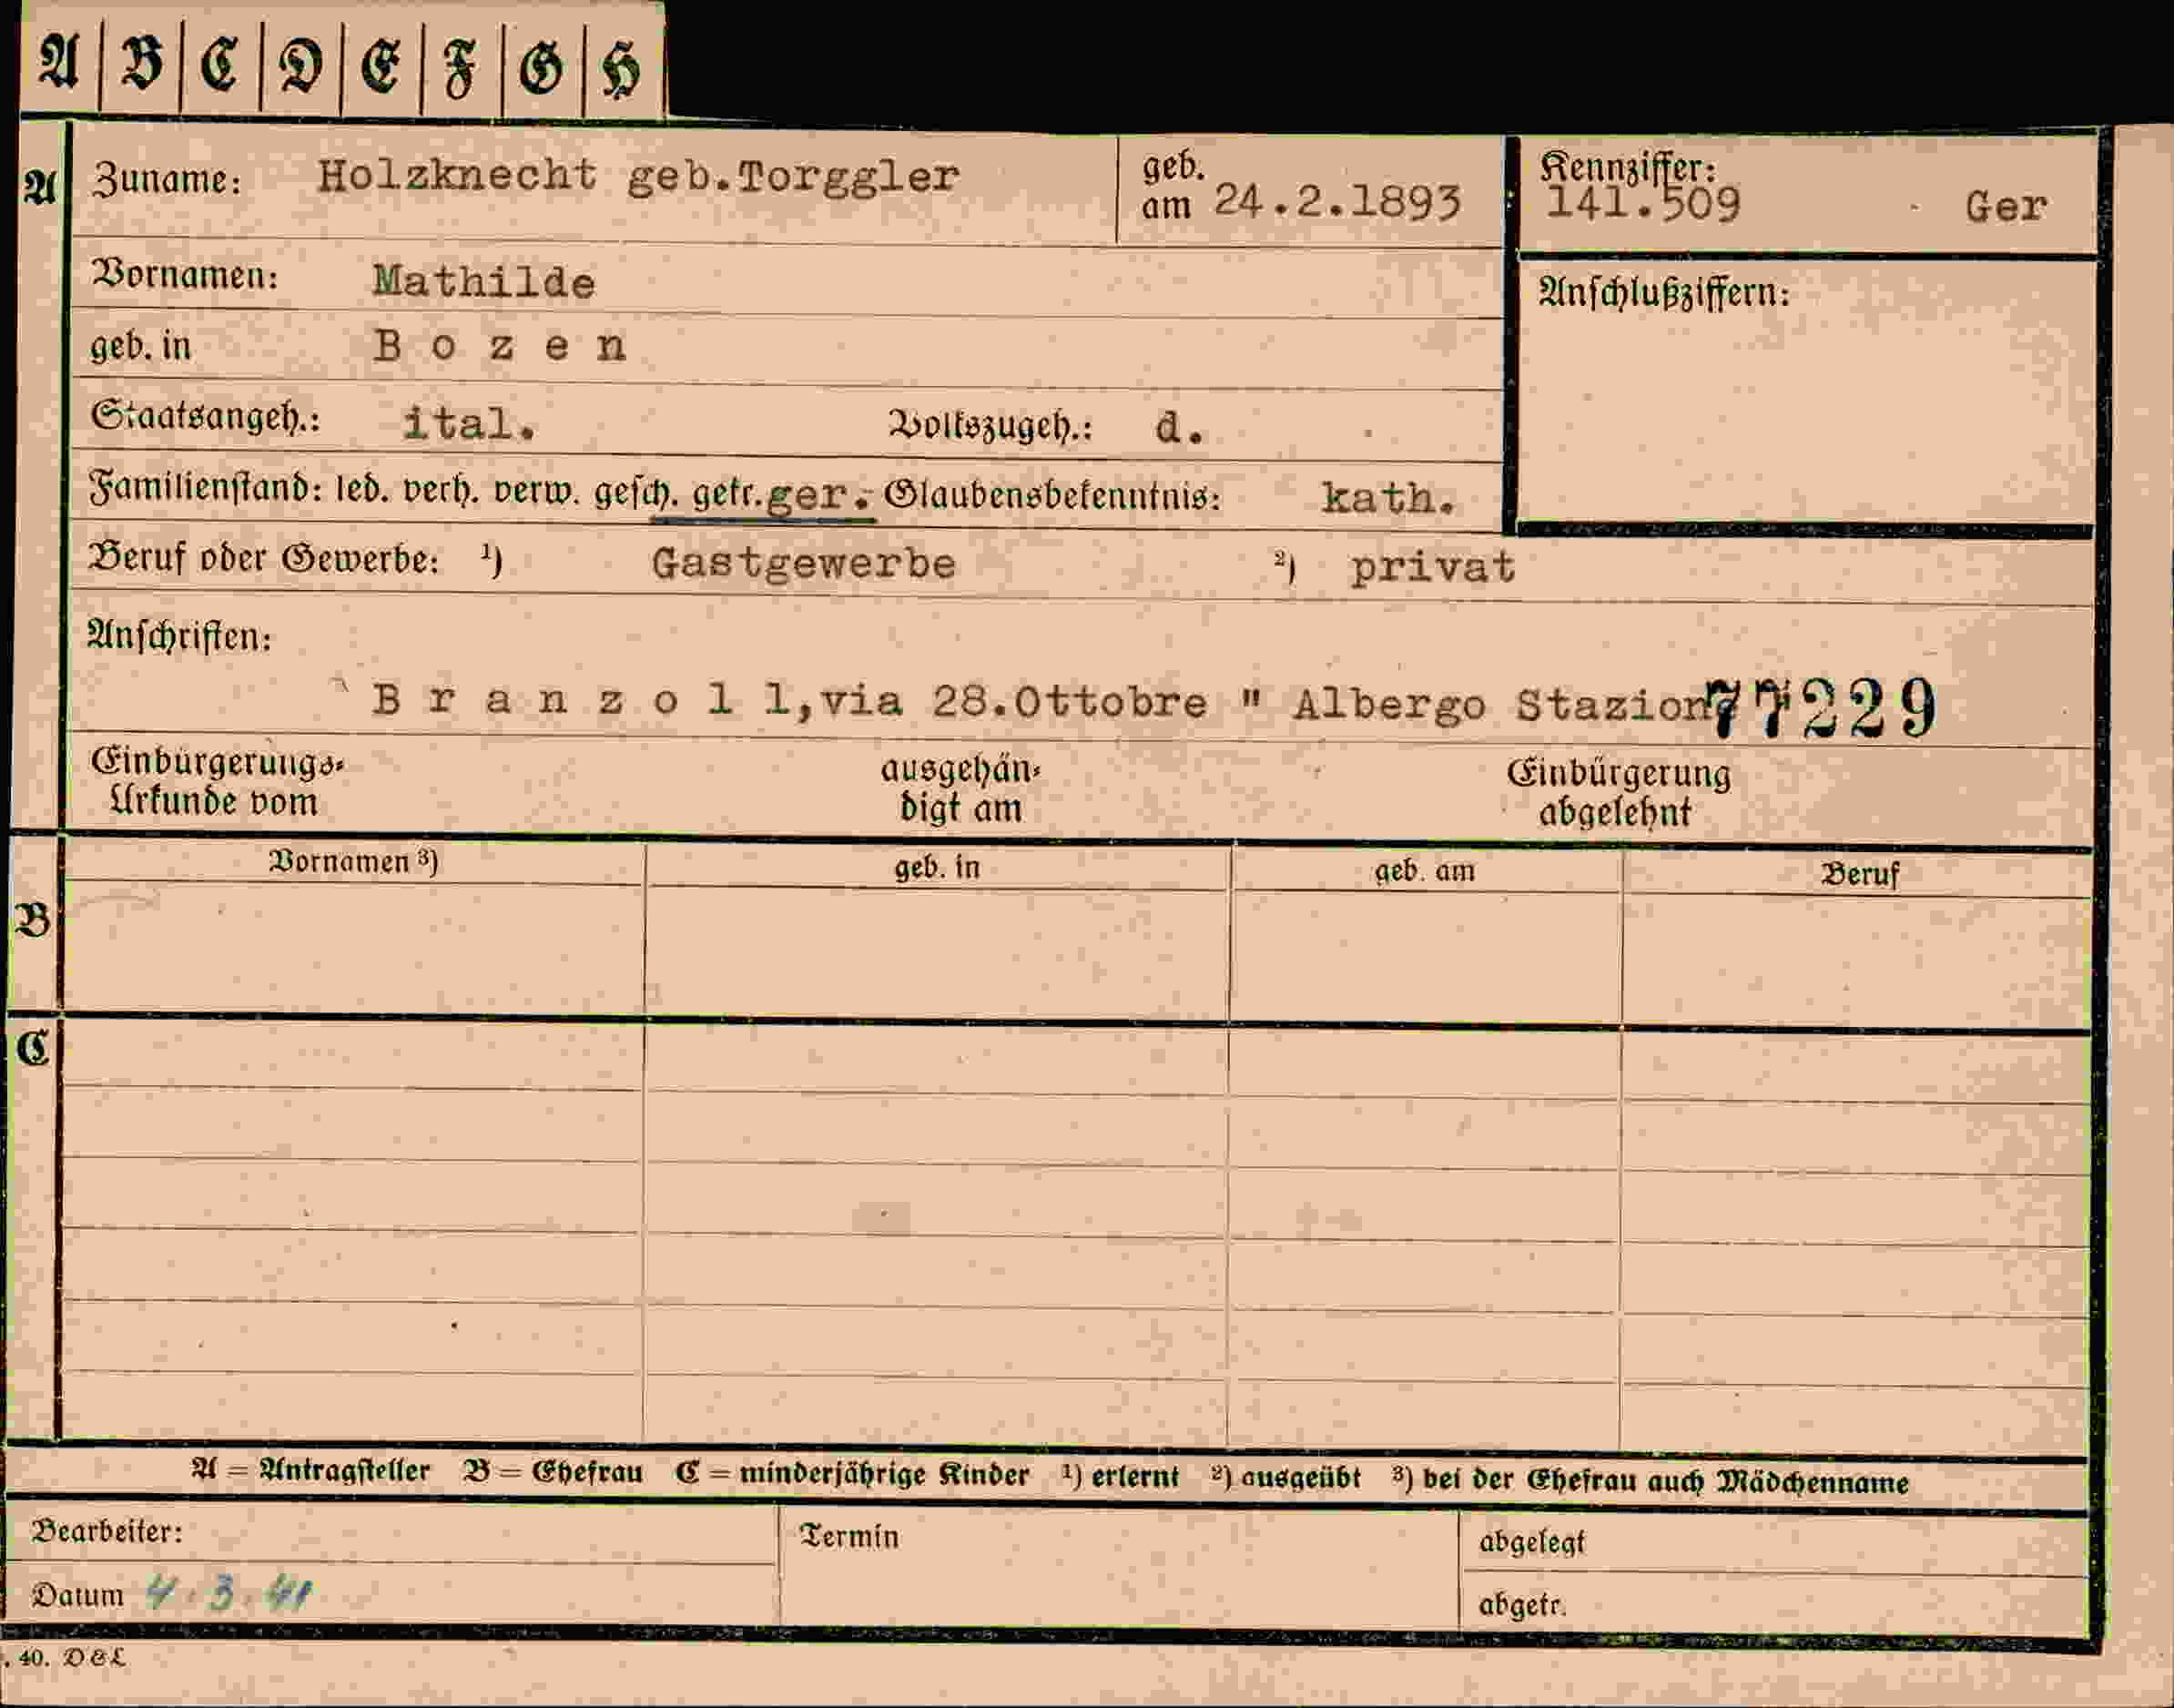 A B C D E F G H
A Zuname: Holzknecht geb.Torggler geb. am 24.2.1893 Kennziffer: 141.509 Ger
Vornamen: Mathilde Anschlußziffern:
geb. in B o z e n
Staatsangeh.: ital. Volkszugeh.: d.
Familienstand: led. verh. verw. gesch. getr. ger. Glaubensbekenntnis: kath.
Beruf oder Gewerbe: ¹) Gastgewerbe ²) privat
Anschriften:
B r a n z o l l, via 28.Ottobre " Albergo 77229
Einbürgerungs- ausgehän- Einbürgerung
Urkunde vom digt am abgelehnt
Vornamen ³) geb. in geb. am Beruf
B
C
A = Antragsteller B = Ehefrau C = minderjährige Kinder ¹) erlernt ²) ausgeübt ³) bei der Ehefrau auch Mädchenname
Bearbeiter: Termin abgelegt
Datum 4.3.41 abgetr.
. 40. D&L